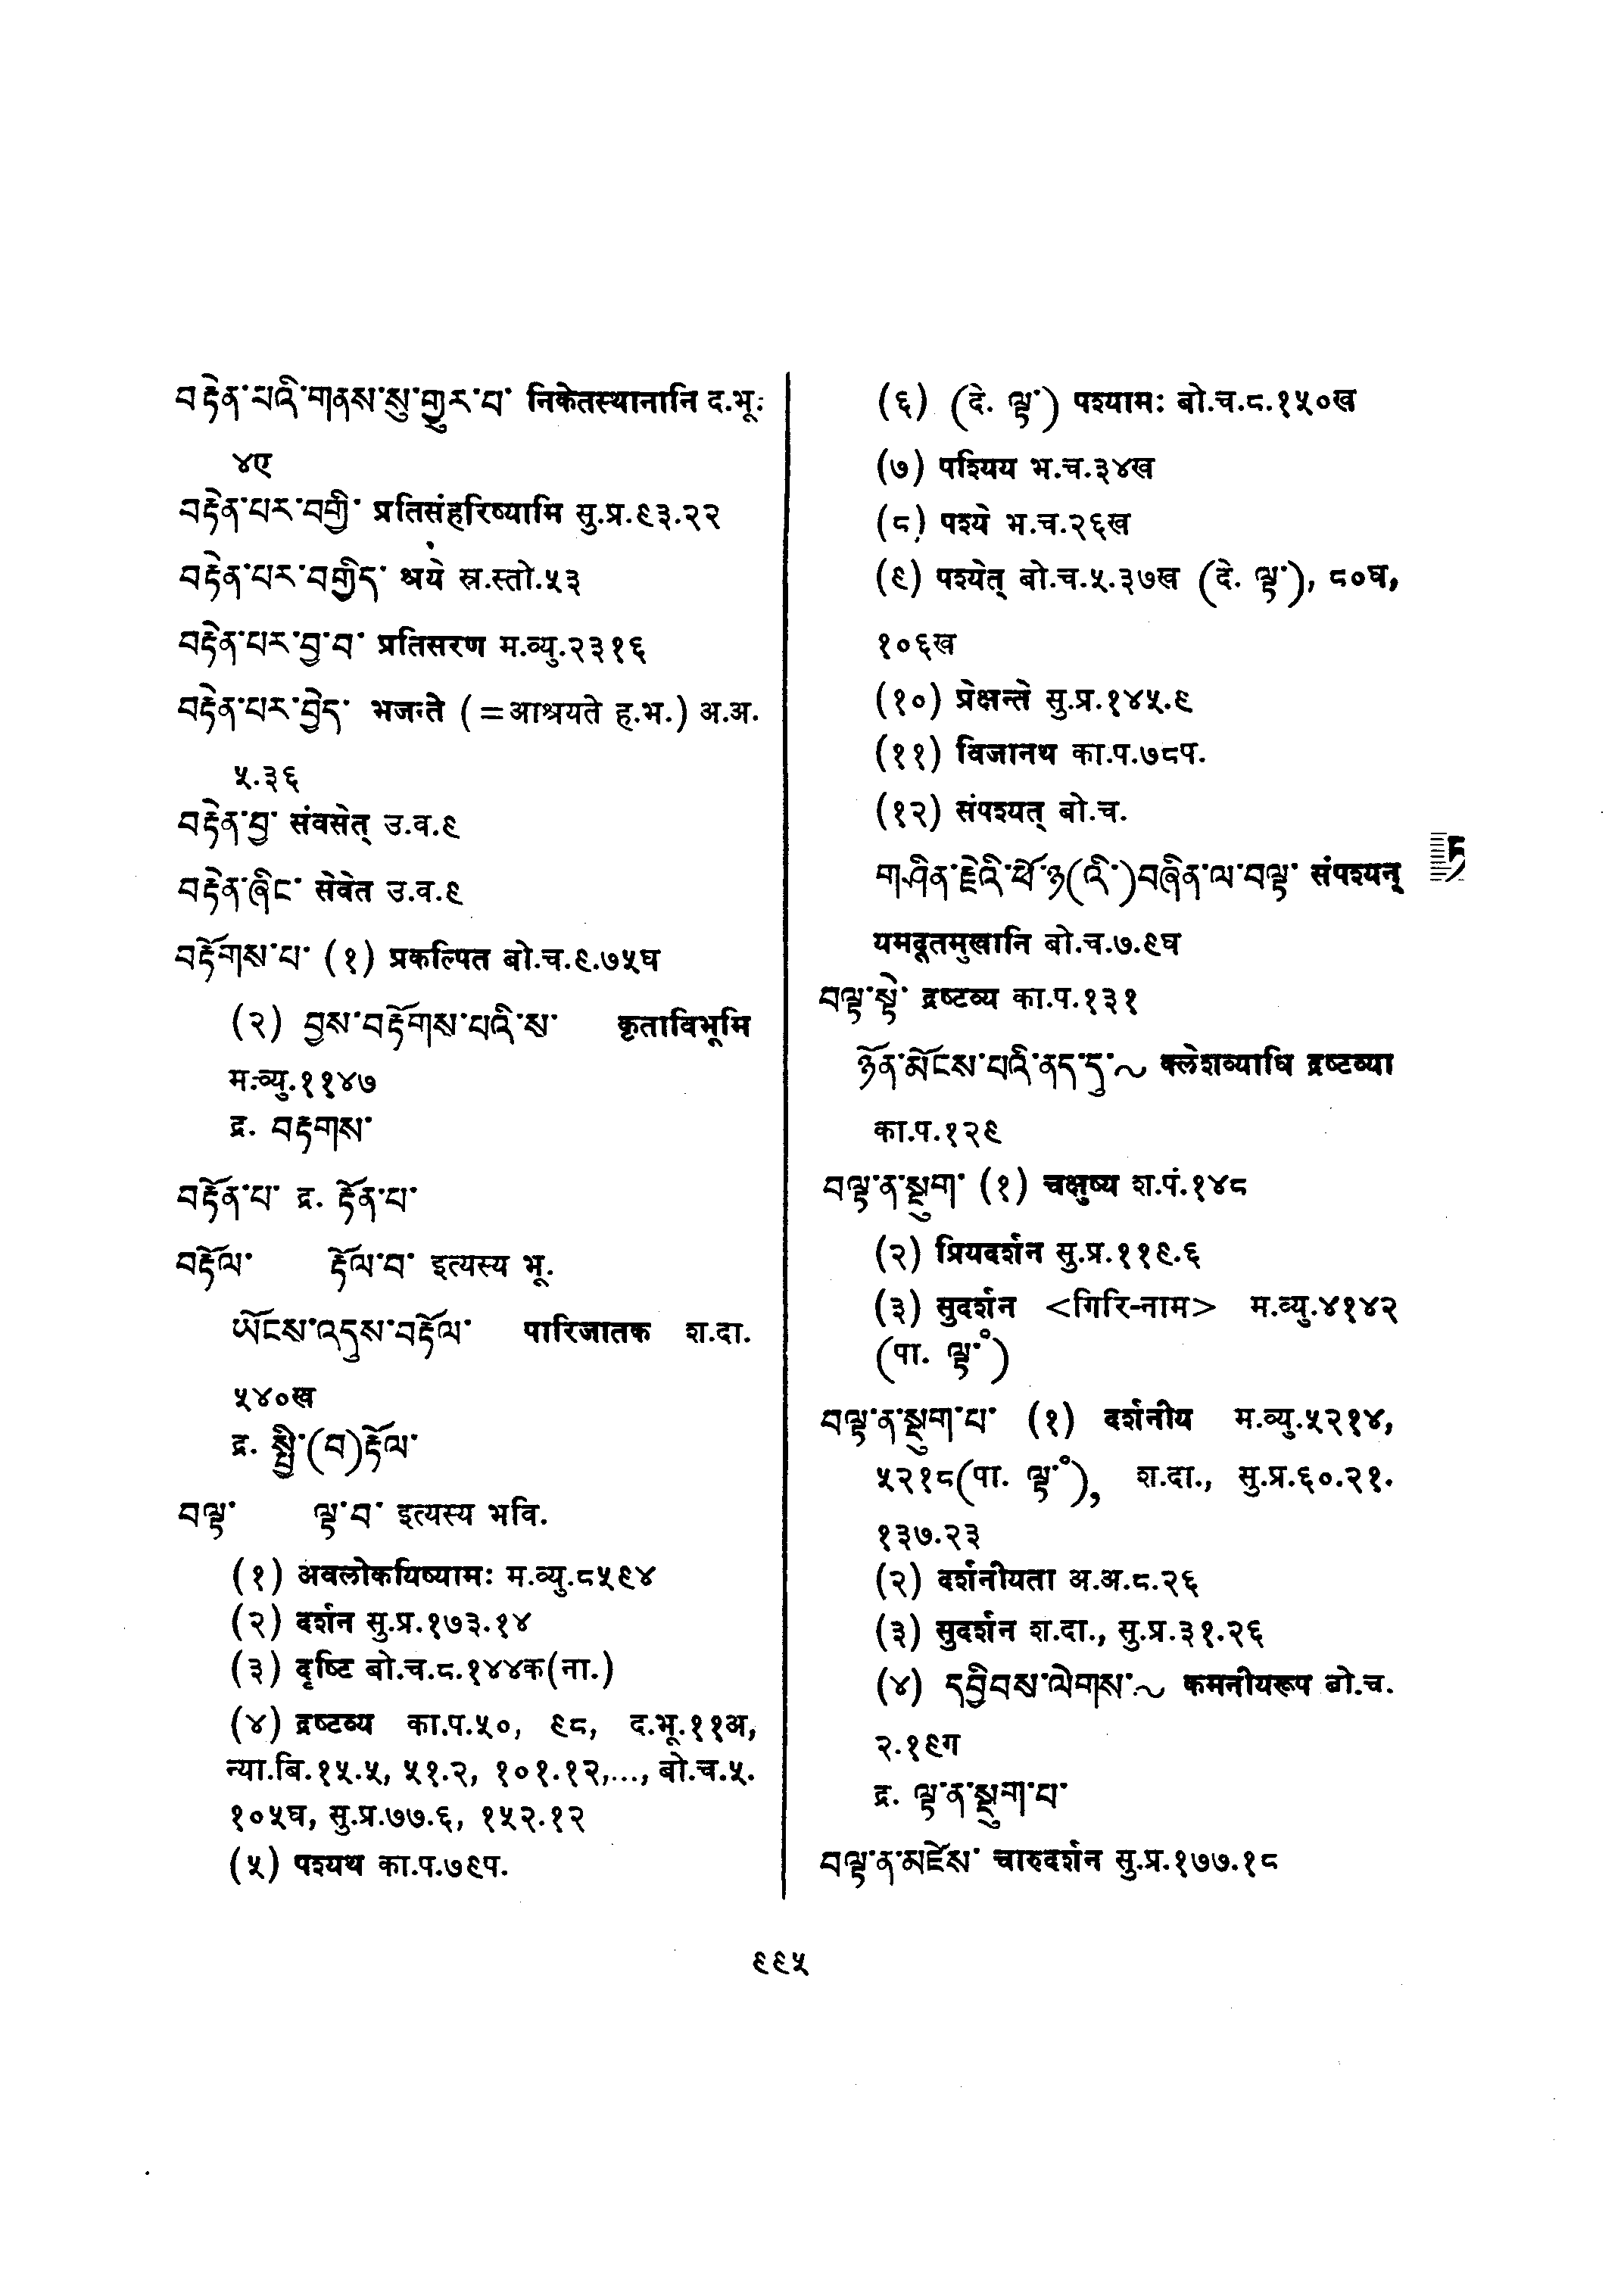 བརྟེན་པའི་གནས་སུ་གྱུར་པ་ निकेतस्थानानि द.भू.
४ए
བརྟེན་པར་བགྱི་ प्रतिसंहरिष्यामि सु.प्र.९३.२२
བརྟེན་པར་བགྱིད་ श्रये स्र.स्तो.५३
བརྟེན་པར་བྱ་བ་ प्रतिसरण म.व्यु.२३१६
བརྟེན་པར་བྱེད་ भजन्ते (=आश्रयते ह.भ.) अ.अ.
५.३६
བརྟེན་བྱ་ संवसेत् उ.व.९
བརྟེན་ཞིང་ सेवेत उ.व.९
བརྟོགས་པ་ (१) प्रकल्पित बो.च.९.७५घ
(२) བྱས་བརྟོགས་པའི་ས་ कृताविभूमि
म.व्यु.११४७
द्र. བརྟགས་
བརྟོན་པ་ द्र. རྟོན་པ་
བརྟོལ་ རྟོལ་བ་ इत्यस्य भू.
ཡོངས་འདུས་བརྟོལ་ पारिजातक श.दा.
५४०ख
द्र. སྤྱི་(བ)རྟོལ་
བལྟ་ ལྟ་བ་ इत्यस्य भवि.
(१) अवलोकयिष्यामः म.व्यु.८५९४
(२) दर्शन सु.प्र.१७३.१४
(३) दृष्टि बो.च.८.१४४क(ना.)
(४) द्रष्टव्य का.प.५०, ९८, द.भू.११अ,
न्या.बि.१५.५, ५१.२, १०१.१२,..., बो.च.५.
१०५घ, सु.प्र.७७.६, १५२.१२
(५) पश्यथ का.प.७९प.
(६) (दे. ལྟ་) पश्यामः बो.च.८.१५०ख
(७) पश्यिय भ.च.३४ख
(८) पश्ये भ.च.२६ख
(९) पश्येत् बो.च.५.३७ख (दे. ལྟ་), ८०घ,
१०६ख
(१०) प्रेक्षन्ते सु.प्र.१४५.९
(११) विजानथ का.प.७८प.
(१२) संपश्यत् बो.च.
གཤིན་རྗེའི་ཕོ་ཉ(འི་)བཞིན་ལ་བལྟ་ संपश्यन्
यमदूतमुखानि बो.च.७.९घ
བལྟ་སྟེ་ द्रष्टव्य का.प.१३१
ཉོན་མོངས་པའི་ནད་དུ་~ क्लेशव्याधि द्रष्टव्या
का.प.१२९
བལྟ་ན་སྡུག་ (१) चक्षुष्य श.पं.१४८
(२) प्रियदर्शन सु.प्र.११९.६
(३) सुदर्शन <गिरि-नाम> म.व्यु.४१४२
(पा. ལྟ་ॅ)
བལྟ་ན་སྡུག་པ་ (१) दर्शनीय म.व्यु.५२१४,
५२१८(पा. ལྟ་ॅ), श.दा., सु.प्र.६०.२१.
१३७.२३
(२) दर्शनीयता अ.अ.८.२६
(३) सुदर्शन श.दा., सु.प्र.३१.२६
(४) དབྱིབས་ལེགས་~ कमनीयरूप बो.च.
२.१९ग
द्र. ལྟ་ན་སྡུག་པ་
བལྟ་ན་མཛེས་ चारुदर्शन सु.प्र.१७७.१८
ཏ
९९५